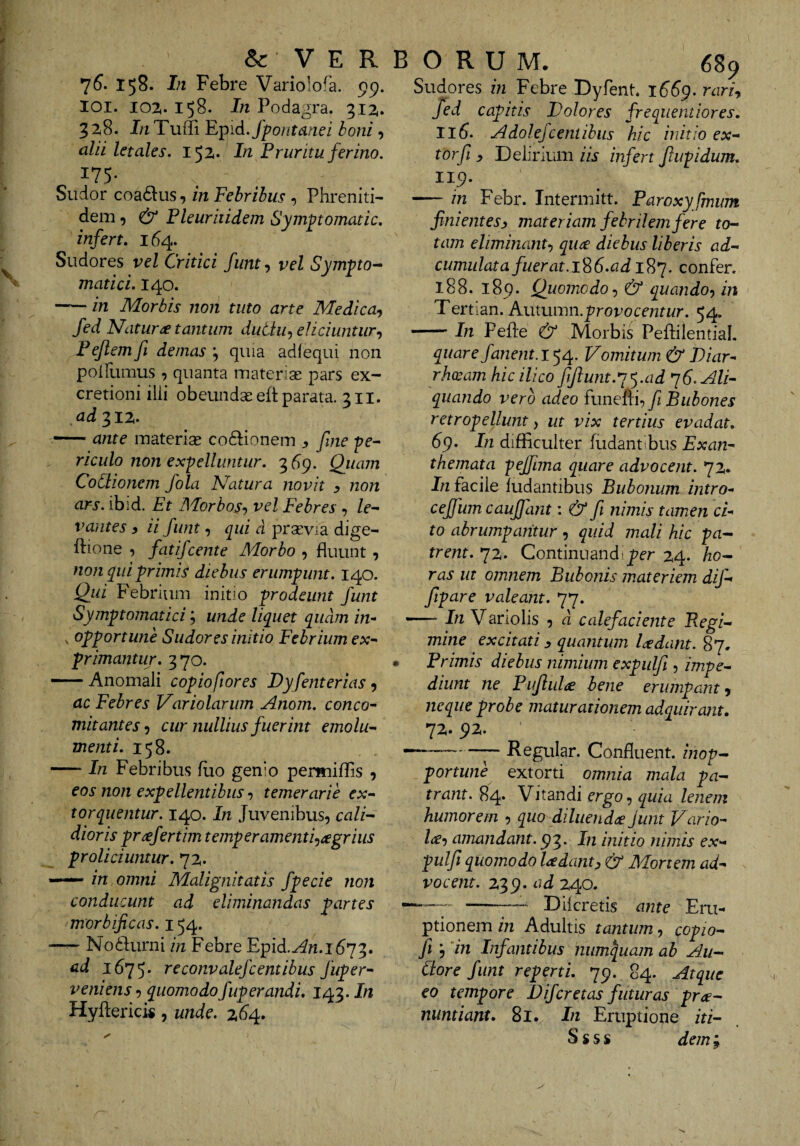 & VERBORUM. 689
76. 158. In Febre Variolosa. 99.
101. 102. 158. In Podagra. 312.
328. In Tussi Epid. spontanei boni,
alii letales. 152. In Pruritu ferino.
175.
Sudor coactus, in Febribus, Phreniti-
dem, & Pleuritidem Symptomatic.
infert. 164.
Sudores vel Critici sunt, vel Sympto-
matici. 140.
— in Morbis non tuto arte Medica,
sed Naturæ tantum ductu, eliciuntur,
Pestem si demas; quia adsequi non
possumus, quanta materiæ pars ex-
cretioni illi obeundæ est parata. 311.
ad 312.
— ante materiæ coctionem, sine pe-
riculo non expelluntur. 369. Quam
Coctionem sola Natura novit, non
ars. ibid. Et Morbos, vel Febres, le-
vantes, ii sunt, qui à prævia dige-
stione, fatiscente Morbo, fluunt,
non qui primis diebus erumpunt. 140.
Qui Febrium initio prodeunt sunt
Symptomatici; unde liquet quàm in-
opportunè Sudores initio Febrium ex-
primantur. 370.
— Anomali copiosiores Dysenterias,
ac Febres Variolarum Anom. conco-
mitantes, cur nullius fuerint emolu-
menti. 158.
— In Febribus suo genio permissis,
eos non expellentibus, temerariè ex-
torquentur. 140. In Juvenibus, cali-
dioris præsertim temperamenti, ægrius
proliciuntur. 72.
— in omni Malignitatis specie non
conducunt ad eliminandas partes
morbificas. 154.
— Nocturni in Febre Epid. An. 1673.
ad 1675. reconvalescentibus super-
veniens, quomodo superandi. 143. In
Hystericis, unde. 264.
Sudores in Febre Dysent. 1669. rari,
sed capitis Dolores frequentiores.
116. Adolescentibus hic initio ex-
torsi, Delirium iis infert stupidum.
119.
— in Febr. Intermitt. Paroxysmum
finientes, materiam febrilem fere to-
tam eliminant, quæ diebus liberis ad-
cumulata fuerat. 186. ad 187. confer.
188. 189. Quomodo, & quando, in
Tertian. Autumn. provocentur. 54.
— In Peste & Morbis Pestilential.
quare sanent. 154. Vomitum & Diar-
rhœam hic ilico sistunt. 75. ad 76. Ali-
quando verò adeo funesti, si Bubones
retropellunt, ut vix tertius evadat.
69. In difficulter sudantibus Exan-
themata pessima quare advocent. 72.
In facile sudantibus Bubonum intro-
cessum caussant: & si nimis tamen ci-
to abrumpantur, quid mali hic pa-
trent. 72. Continuandi per 24. ho-
ras ut omnem Bubonis materiem dis-
sipare valeant. 77.
— In Variolis, à calefaciente Regi-
mine excitati, quantum lædant. 87.
Primis diebus nimium expulsi, impe-
diunt ne Pustulæ bene erumpant,
neque probe maturationem adquirant.
72. 92.
— — Regular. Confluent. inop-
portunè extorti omnia mala pa-
trant. 84. Vitandi ergo, quia lenem
humorem, quo diluendæ sunt Vario-
læ, amandant. 93. In initio nimis ex-
pulsi quomodo lædant, & Mortem ad-
vocent. 239. ad 240.
— — Discretis ante Eru-
ptionem in Adultis tantum, copio-
si; in Infantibus numquam ab Au-
ctore sunt reperti. 79. 84. Atque
eo tempore Discretas futuras præ-
nuntiant. 81. In Eruptione iti-
Ssss dem;